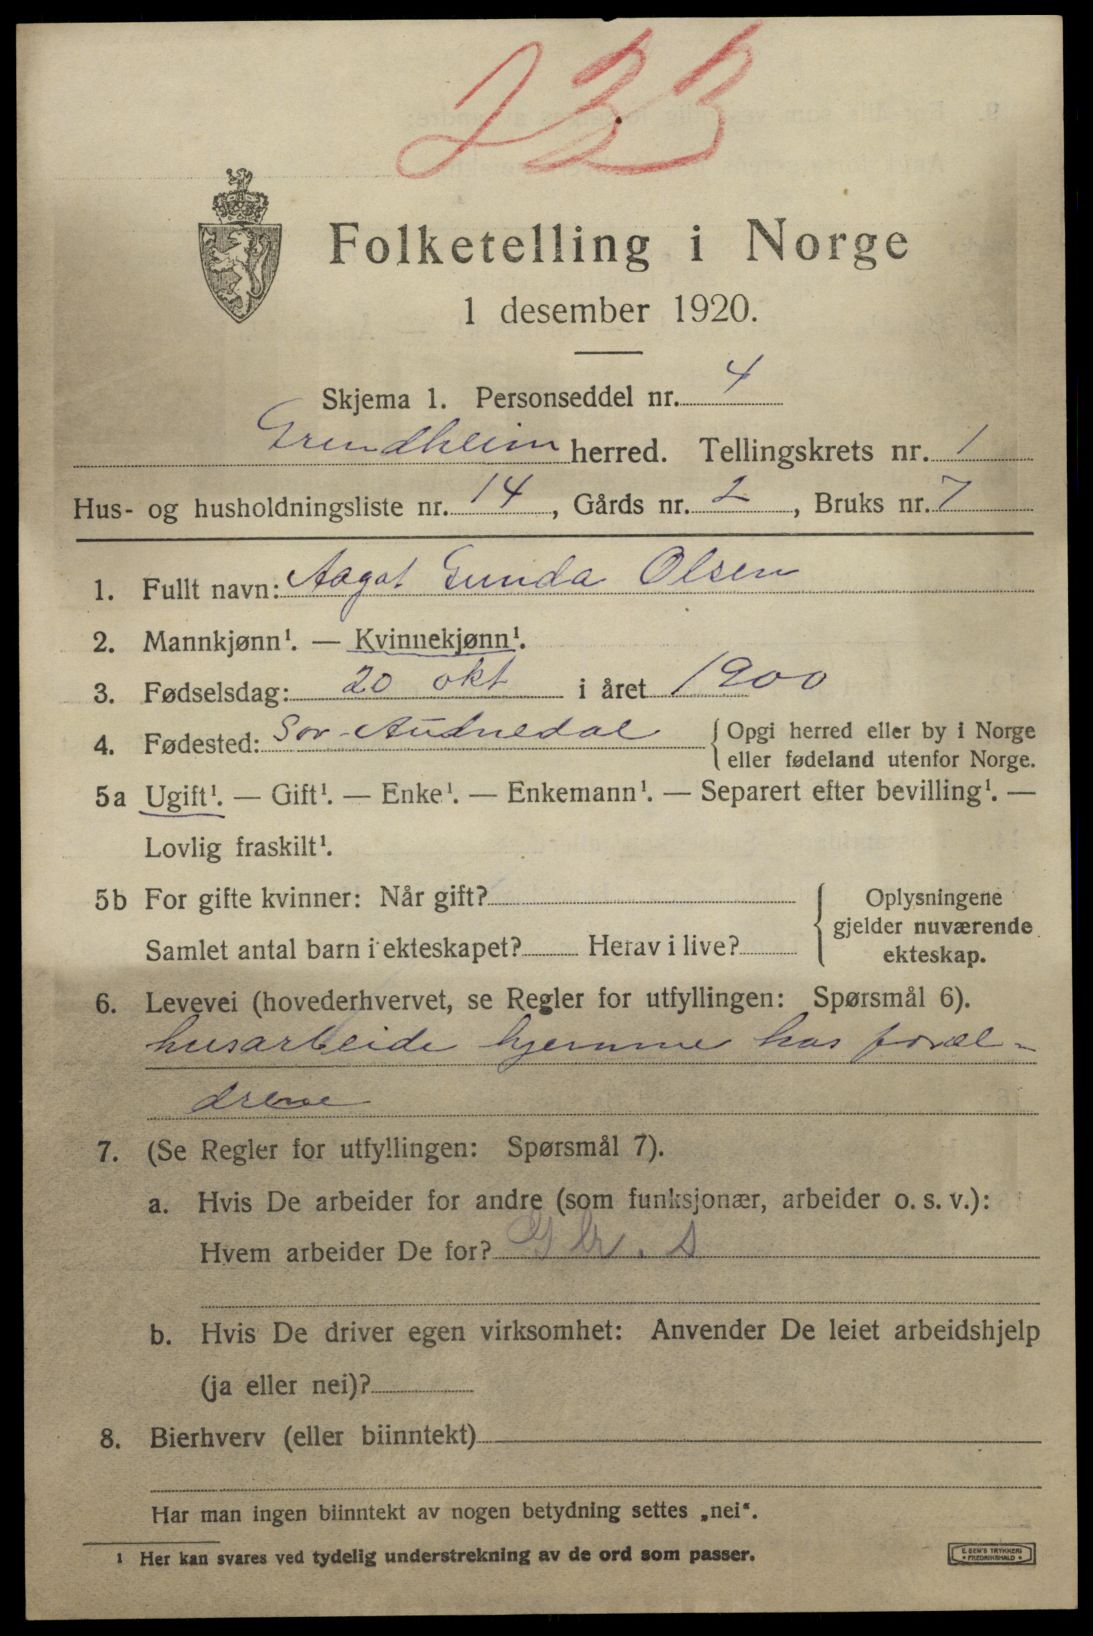 233
Folketelling i Norge
1 desember 1920.
Skjema 1. Personseddel nr. 4
Grindheim herred. Tellingskrets nr. 1
Hus- og husholdningsliste nr. 14, Gårds nr. 2, Bruks nr. 7
1. Fullt navn: Aagot Gunda Olsen
2. Mannkjønn¹. — Kvinnekjønn¹.
3. Fødselsdag: 20 okt i året 1900
4. Fødested: Sør-Audnedal { Opgi herred eller by i Norge
eller fødeland utenfor Norge.
5a Ugift¹. — Gift¹. — Enke¹. — Enkemann¹. — Separert efter bevilling¹. —
Lovlig fraskilt¹.
5b For gifte kvinner: Når gift? { Oplysningene
gjelder nuværende
Samlet antal barn i ekteskapet? Herav i live? ekteskap.
6. Levevei (hovederhvervet, se Regler for utfyllingen: Spørsmål 6).
husarbeide hjemme hos foræl-
drene
7. (Se Regler for utfyllingen: Spørsmål 7).
a. Hvis De arbeider for andre (som funksjonær, arbeider o. s. v.):
Hvem arbeider De for?
b. Hvis De driver egen virksomhet: Anvender De leiet arbeidshjelp
(ja eller nei)?
8. Bierhverv (eller biinntekt)
Har man ingen biinntekt av nogen betydning settes „nei“.
¹ Her kan svares ved tydelig understrekning av de ord som passer.
E. SEM'S TRYKKERI
• FREDRIKSHALD •